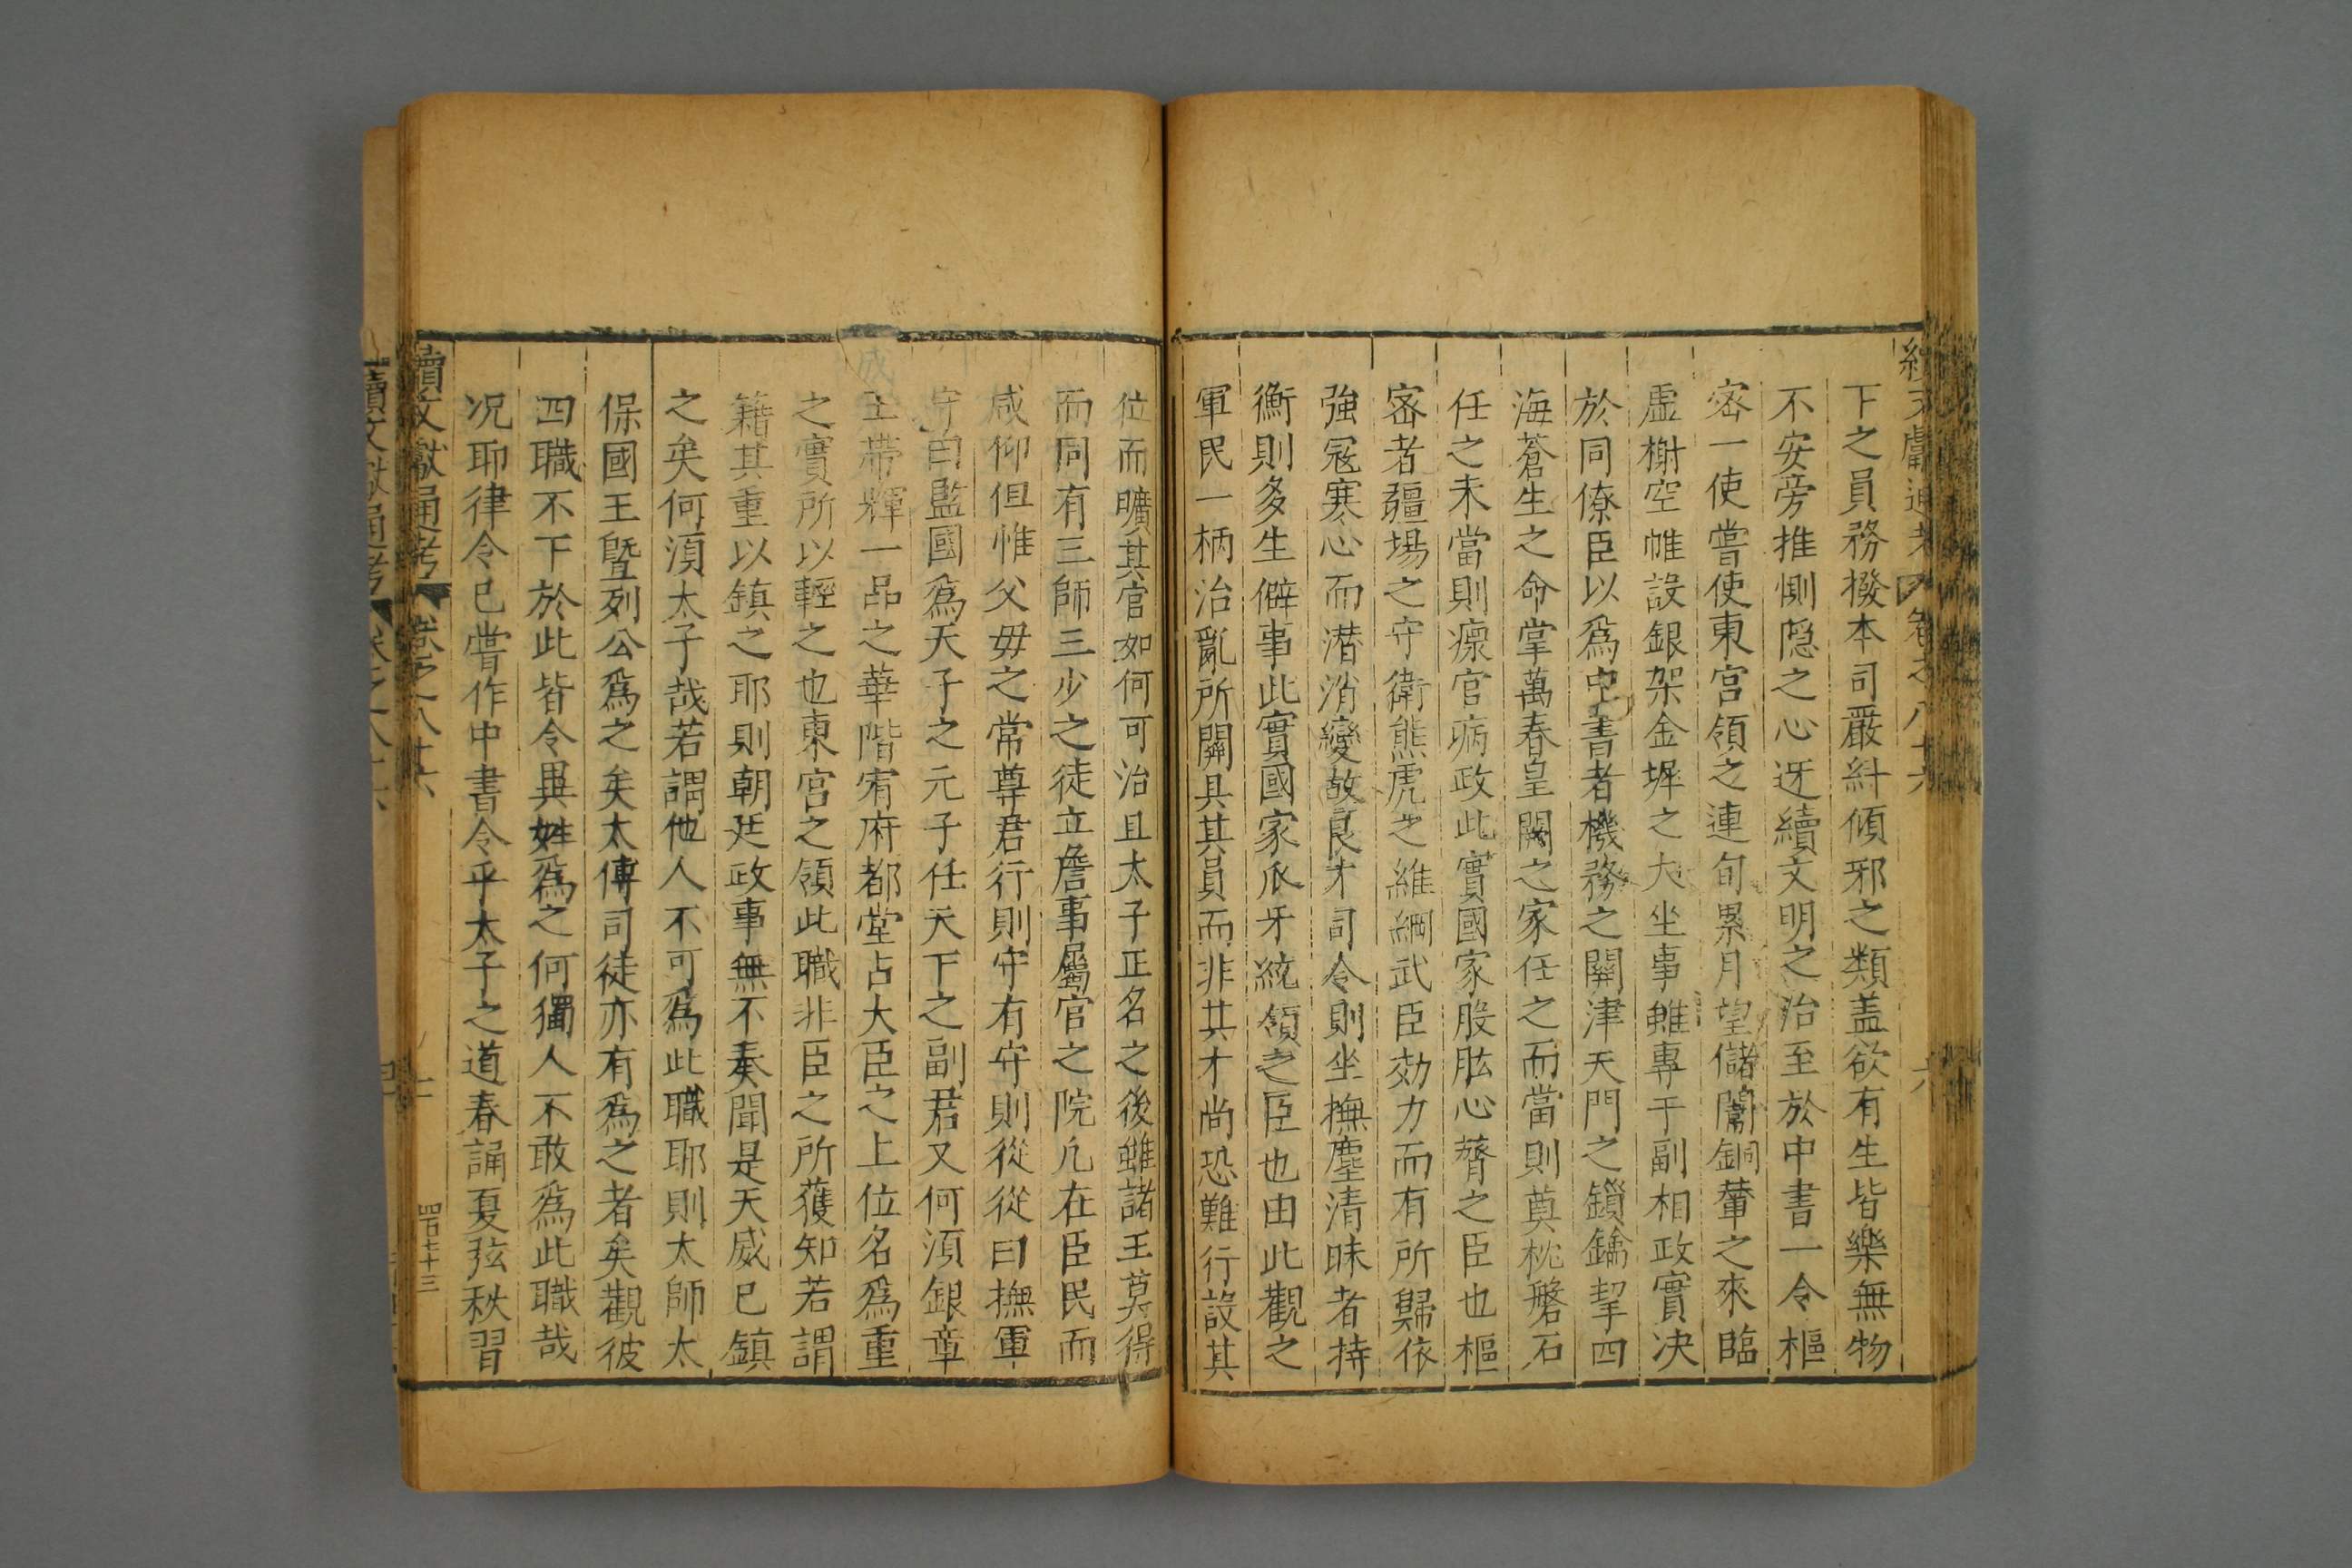 續文獻通考 卷之八十六 六
下之員務撥本司嚴糾傾邪之類盖欲有生皆樂無物
不安旁推惻隐之心迓續文明之治至於中書一令樞
宻一使嘗使東宫領之連旬累月望儲闈銅輦之來臨
虛榭空帷設銀架金墀之大坐事雖專于副相政實决
於同僚臣以爲中書者機務之關津天門之鎖鑰挈四
海蒼生之命掌萬春皇闕之家任之而當則奠枕磐石
任之未當則瘝官病政此實國家股肱心膂之臣也樞
宻者疆場之守衛熊虎之維綱武臣効力而有所歸依
強冦寒心而潜消變故良才司令則坐撫塵清昧者持
衡則多生僻事此實國家爪牙統領之臣也由此觀之
軍民一柄治亂所關具其員而非其才尚恐難行設其
位而曠其官如何可治且太子正名之後雖諸王莫得
而同有三師三少之徒立詹事屬官之院凢在臣民而
咸仰但惟父毋之常尊君行則守有守則從從曰撫軍
守曰監國爲天子之元子任天下之副君又何須銀章
玉帶輝一品之華階宥府都堂占大臣之上位名爲重
之實所以輕之也東宫之領此職非臣之所獲知若謂
籍其重以鎮之耶則朝廷政事無不奏聞是天威已鎮
之矣何須太子哉若謂他人不可爲此職耶則太師太
保國王曁列公爲之矣太傅司徒亦有爲之者矣觀彼
四職不下於此皆令異姓爲之何獨人不敢爲此職哉
况耶律令已嘗作中書令乎太子之道春誦夏弦秋習
續文獻通考 卷之八十六 四百七十三